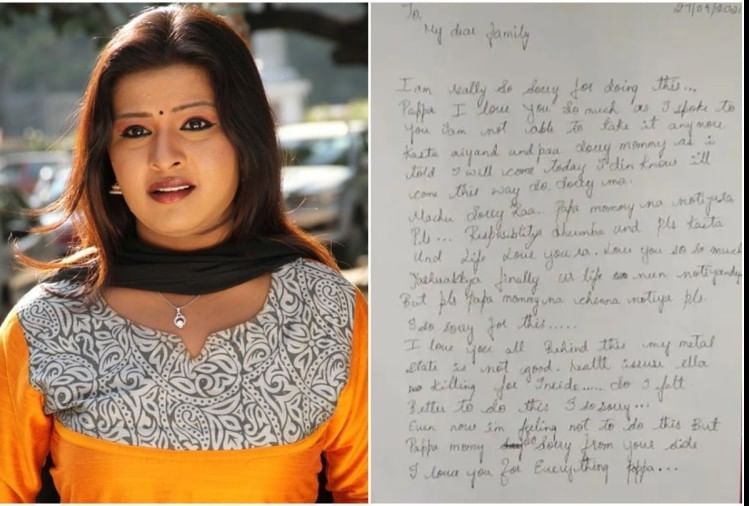 To,
27/09/202
My dear family
I am really so sorry for doing this...
Pappa I love you so much as I spoke to
you I am not able to take it anymore
Kasta aiyand und paa sorry mommy as i
told I will come today I din know ill
come this way so sorry ma.
Machu sorry kaa. Papa mommy na notiyata
Pls... Responsiblity dhumba und pls Kasta
Und life love you sa. love you so so much
finally us life nen notiyandy
But pls Papa mommy na chenna notiya pls.
I so sorry for this.....
I love you all Behind this my metal
state is not good. health issuse ella
killing for Inside..... So I felt
Better to do this I so sorry...
Even now im feling not to do this But
Pappa momy sorry from your side
I love you for Everything Pappa...